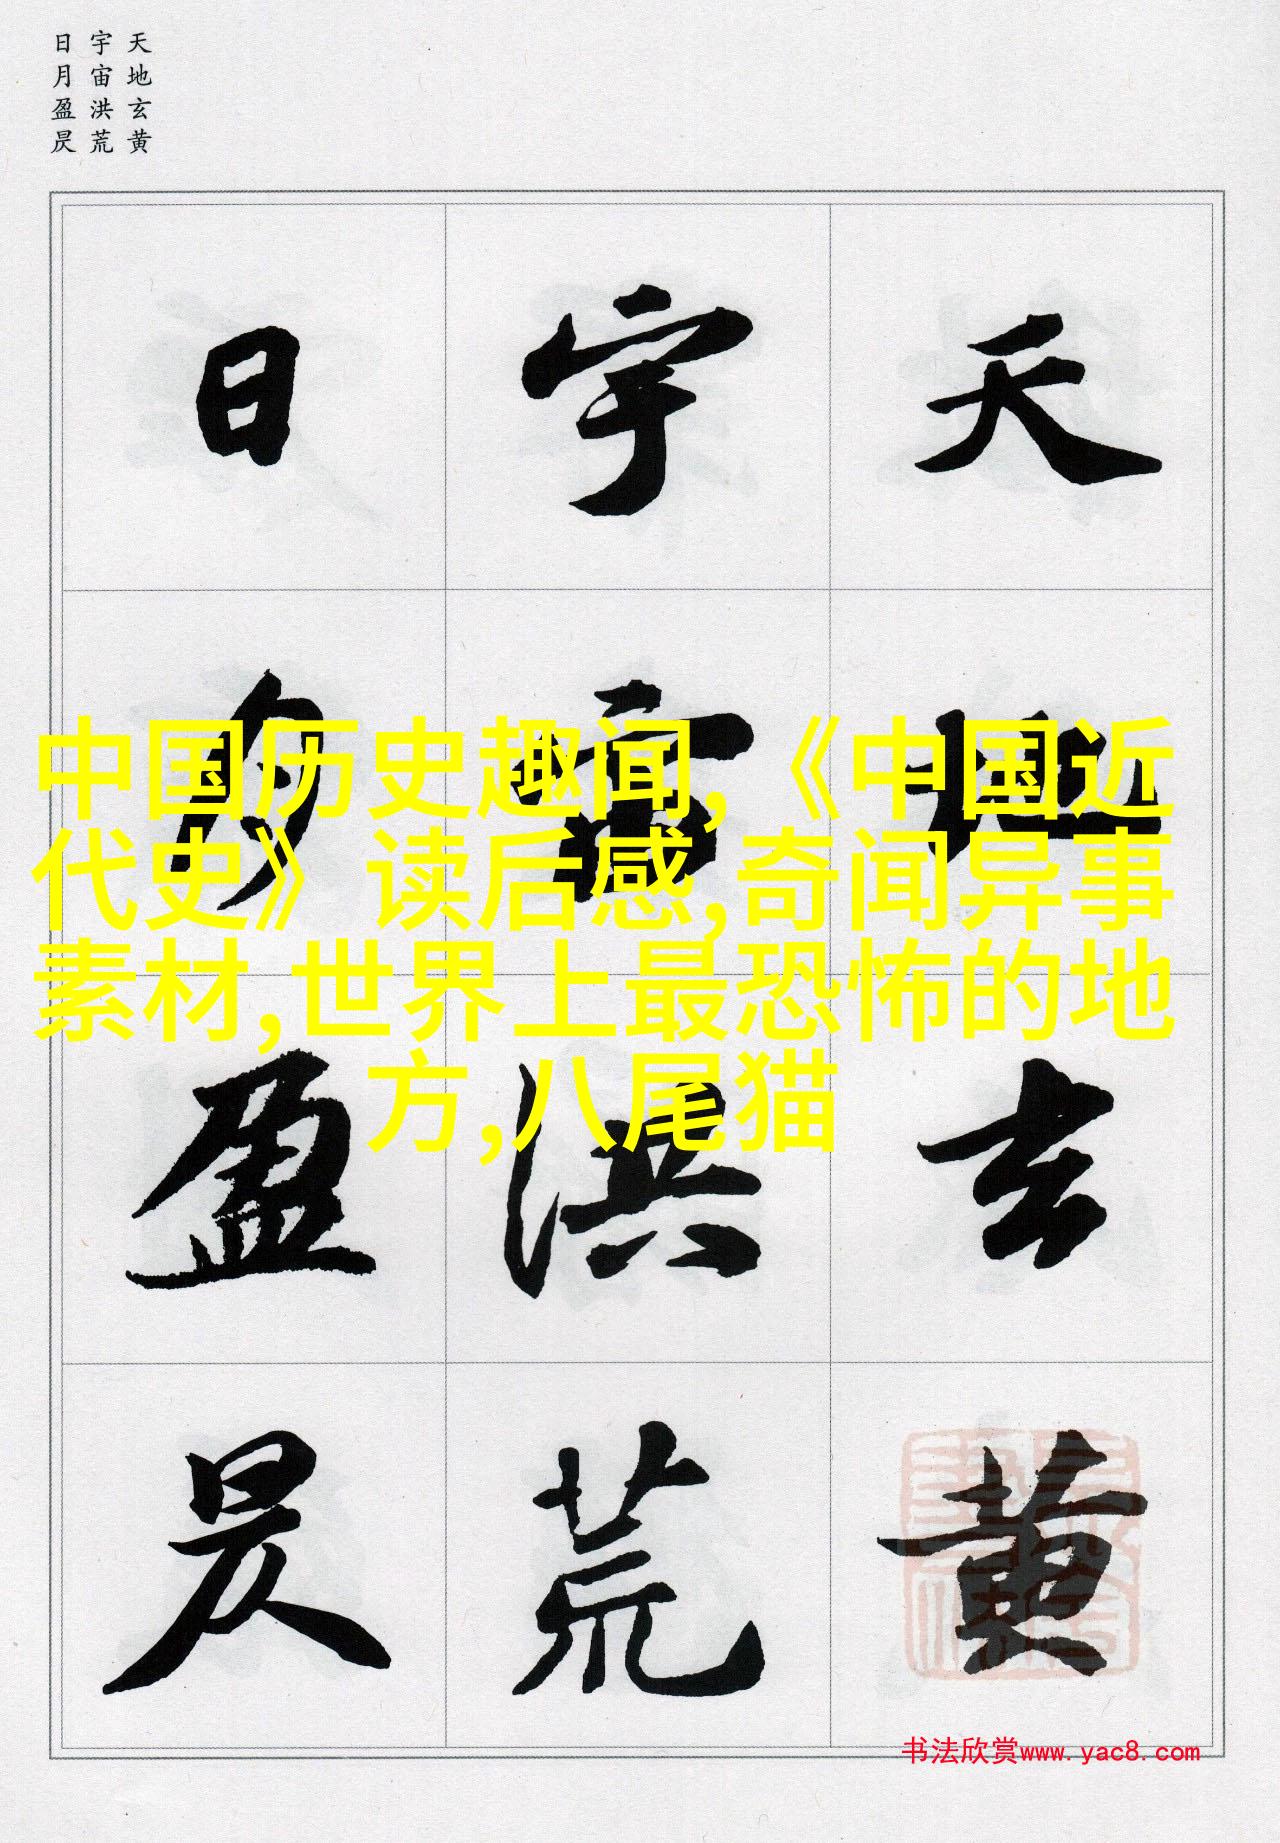 天地玄黄
宇宙洪荒
日月盈昃
天地玄黄
宇宙洪荒
日月盈昃
中国历史趣闻,《中国近
代史》读后感,奇闻异事
素材,世界上最恐怖的地
方,八尾猫
书法欣赏www.yac8.com